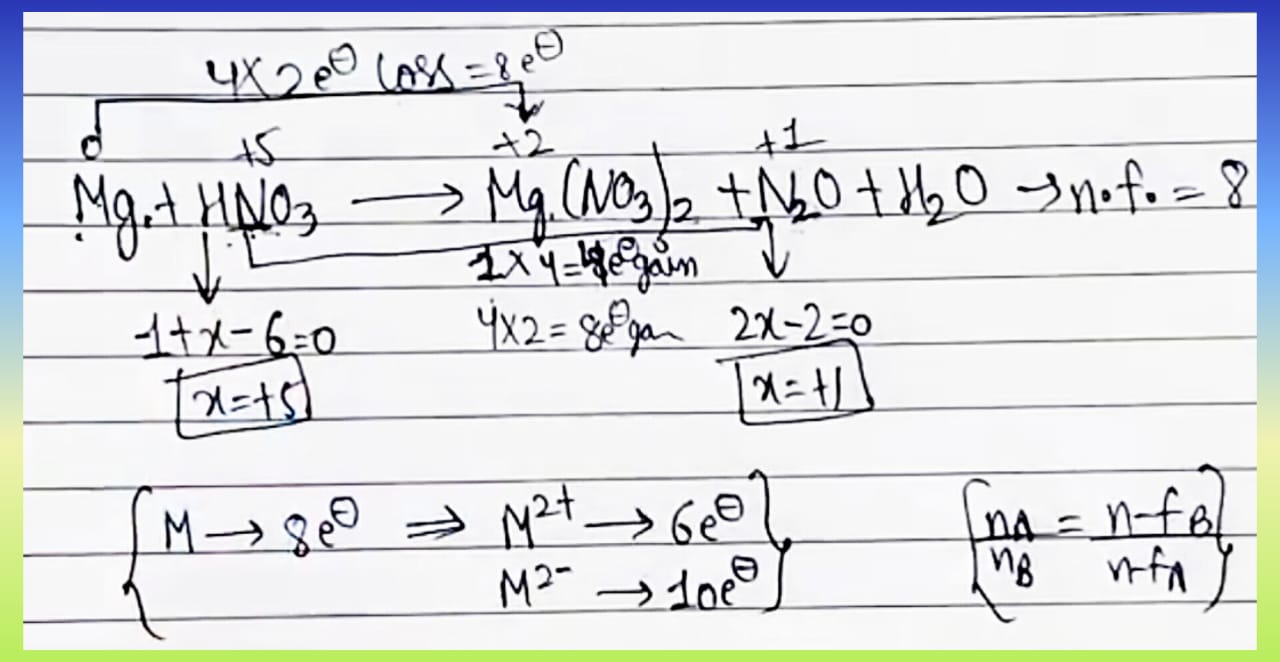 4×2e⊖ loss = 8e⊖
0 +5 +2 +1
Mg + HNO₃ → Mg(NO₃)₂ + N₂O + H₂O → n.f. = 8
2×4 = 8e⊖ gain
1+x-6=0 4×2 = 8e⊖ gan 2x-2=0
x=+5 x=+1
{M → 8e⊖ ⇒ M²⁺ → 6e⊖
M²⁻ → 10e⊖}
{nA/nB = n-fB/n-fA}